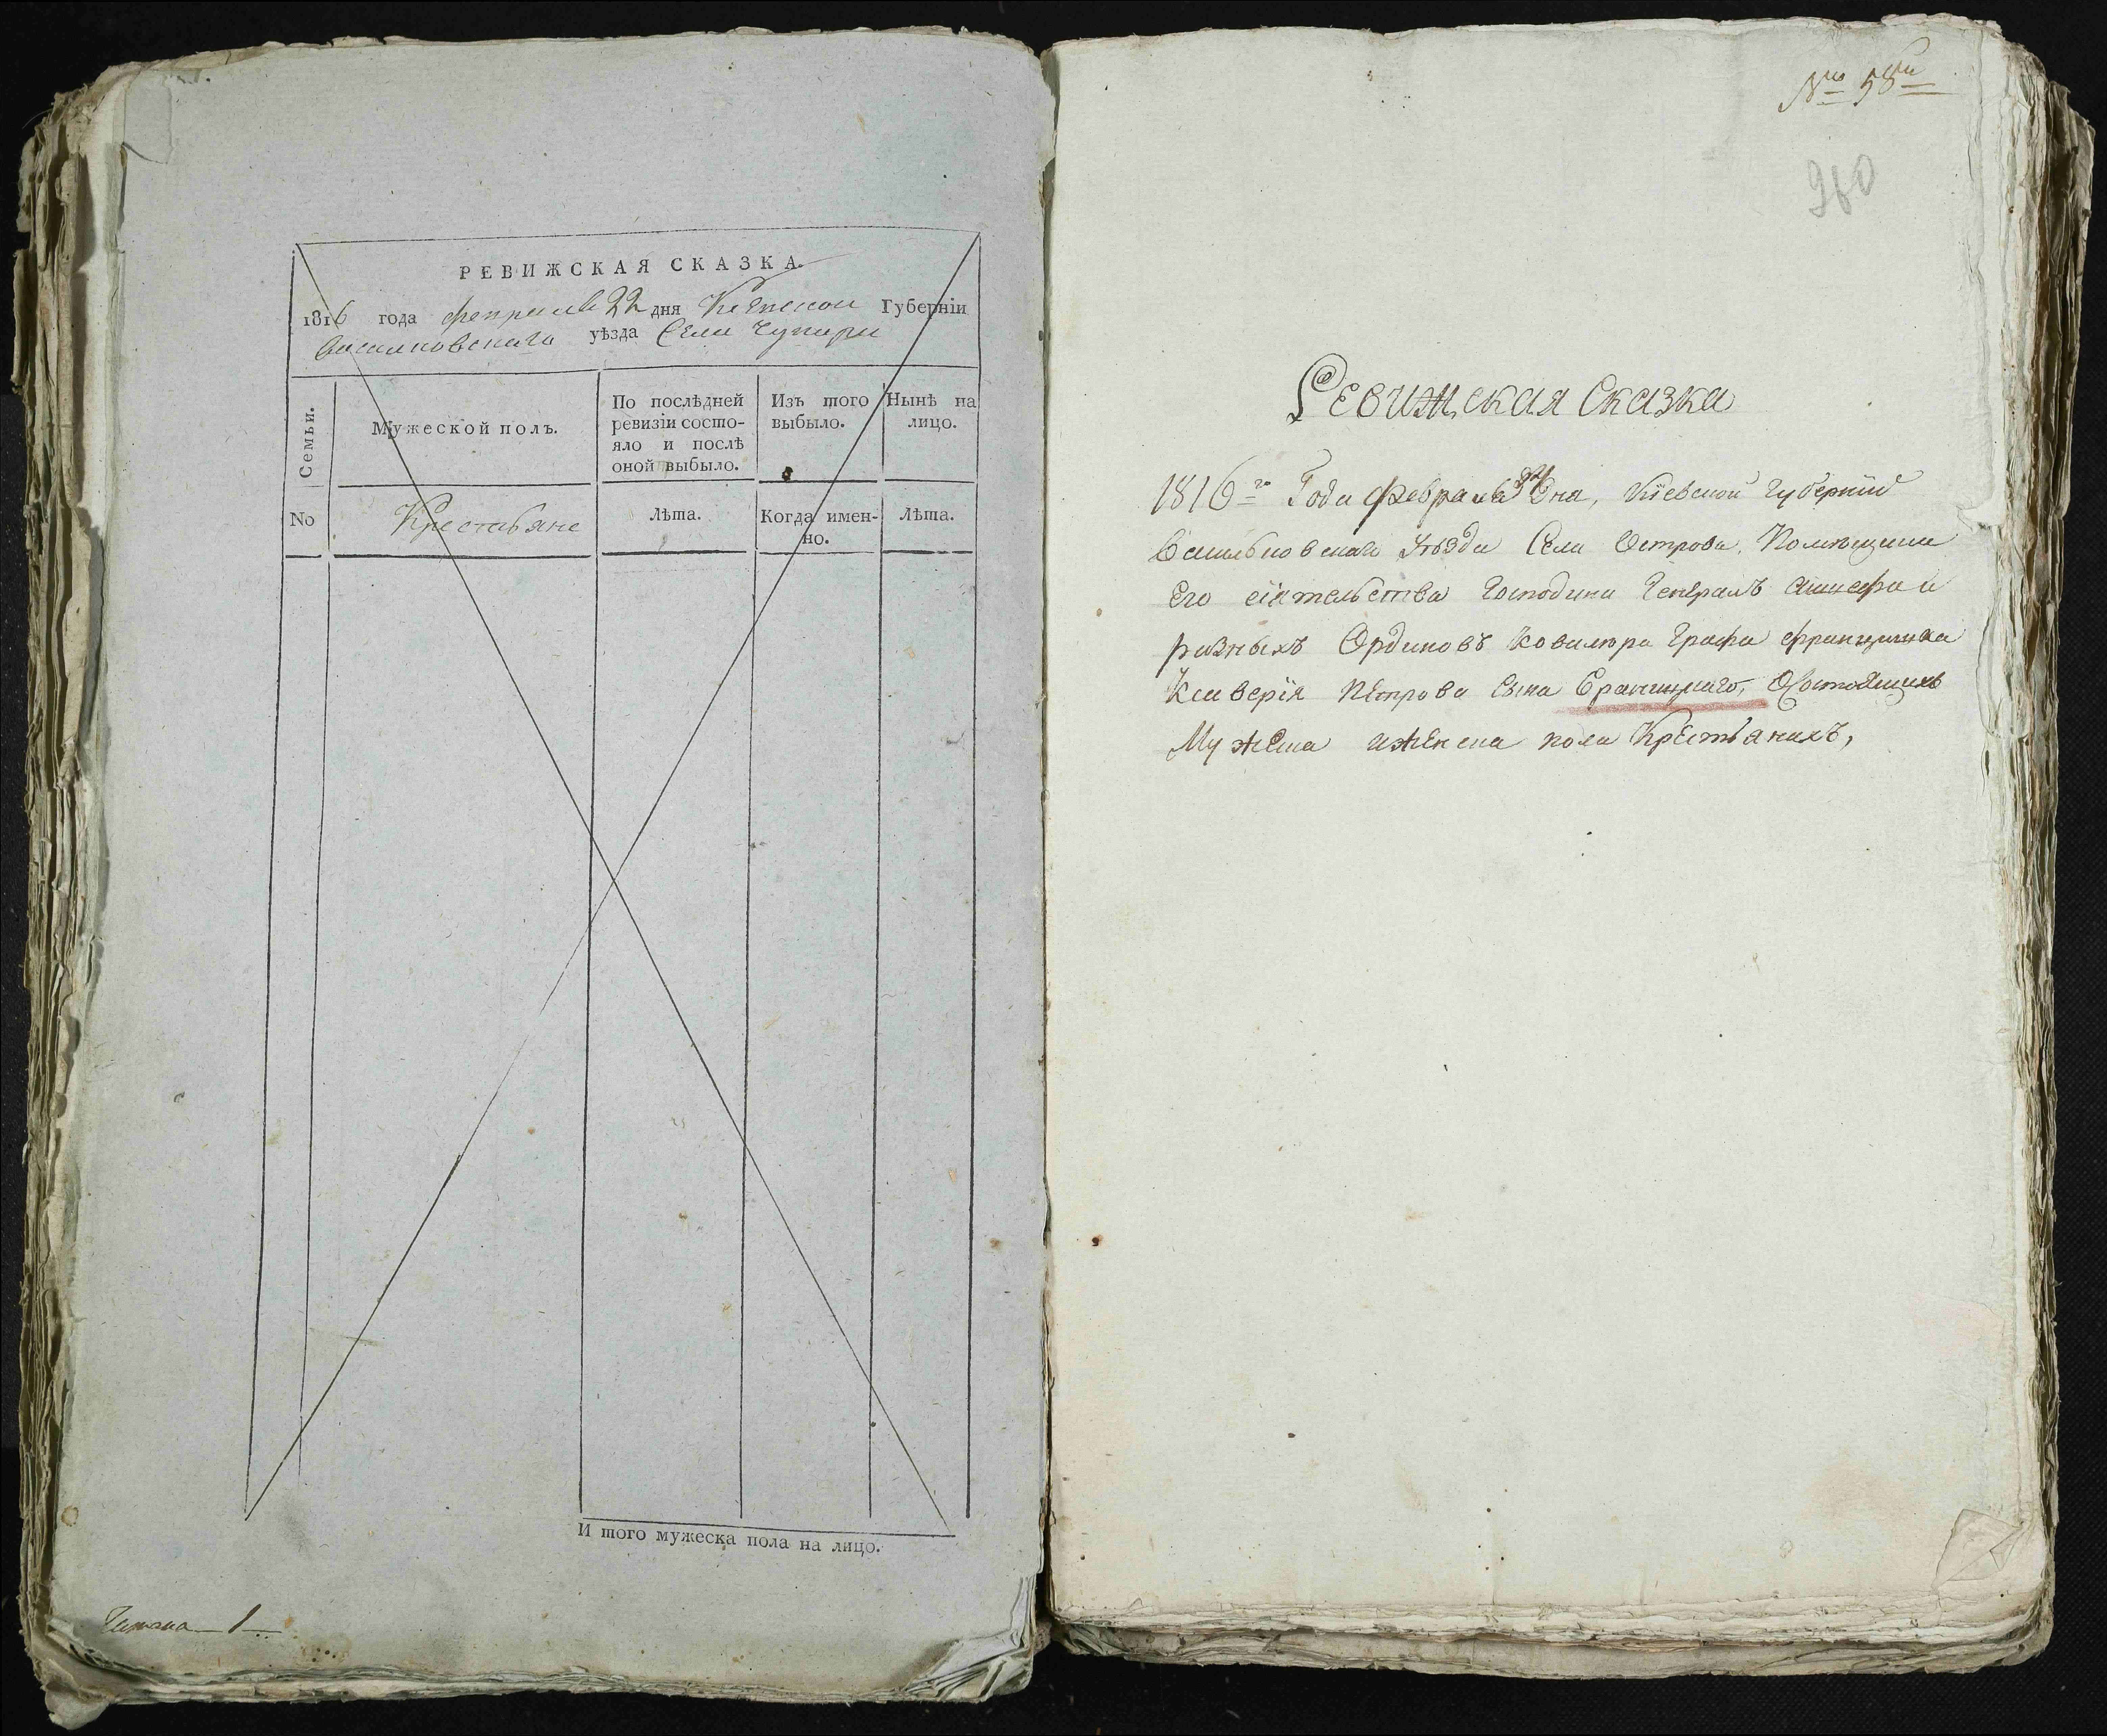 РЕВИЖСКАЯ СКАЗКА.
1816 года февраля 22 дня Кіевской Губерніи
Васильковскаго уѣзда Села Чупири
Семьи.
Мужеской полъ.
По послѣдней ревизіи состояло и послѣ оной выбыло.
Изъ того выбыло.
Нынѣ на лицо.
No
Крестьяне
Лѣта.
Когда именно.
Лѣта.
И того мужеска пола на лицо.
1
№ 58
260
Ревижская Сказка
1816го Года февраля Дня, Кіевской Губерніи
Васильковскаго Уѣзда Села Острова, Помѣщика
Его сіятельства Господина Генералъ Аншефа и
разныхъ Ординовъ Ковалѣра Графа Францишка
Ксаверія Петрова сына Браницкаго, О Состоящихъ
Мужеска иженска пола Крестьянахъ,